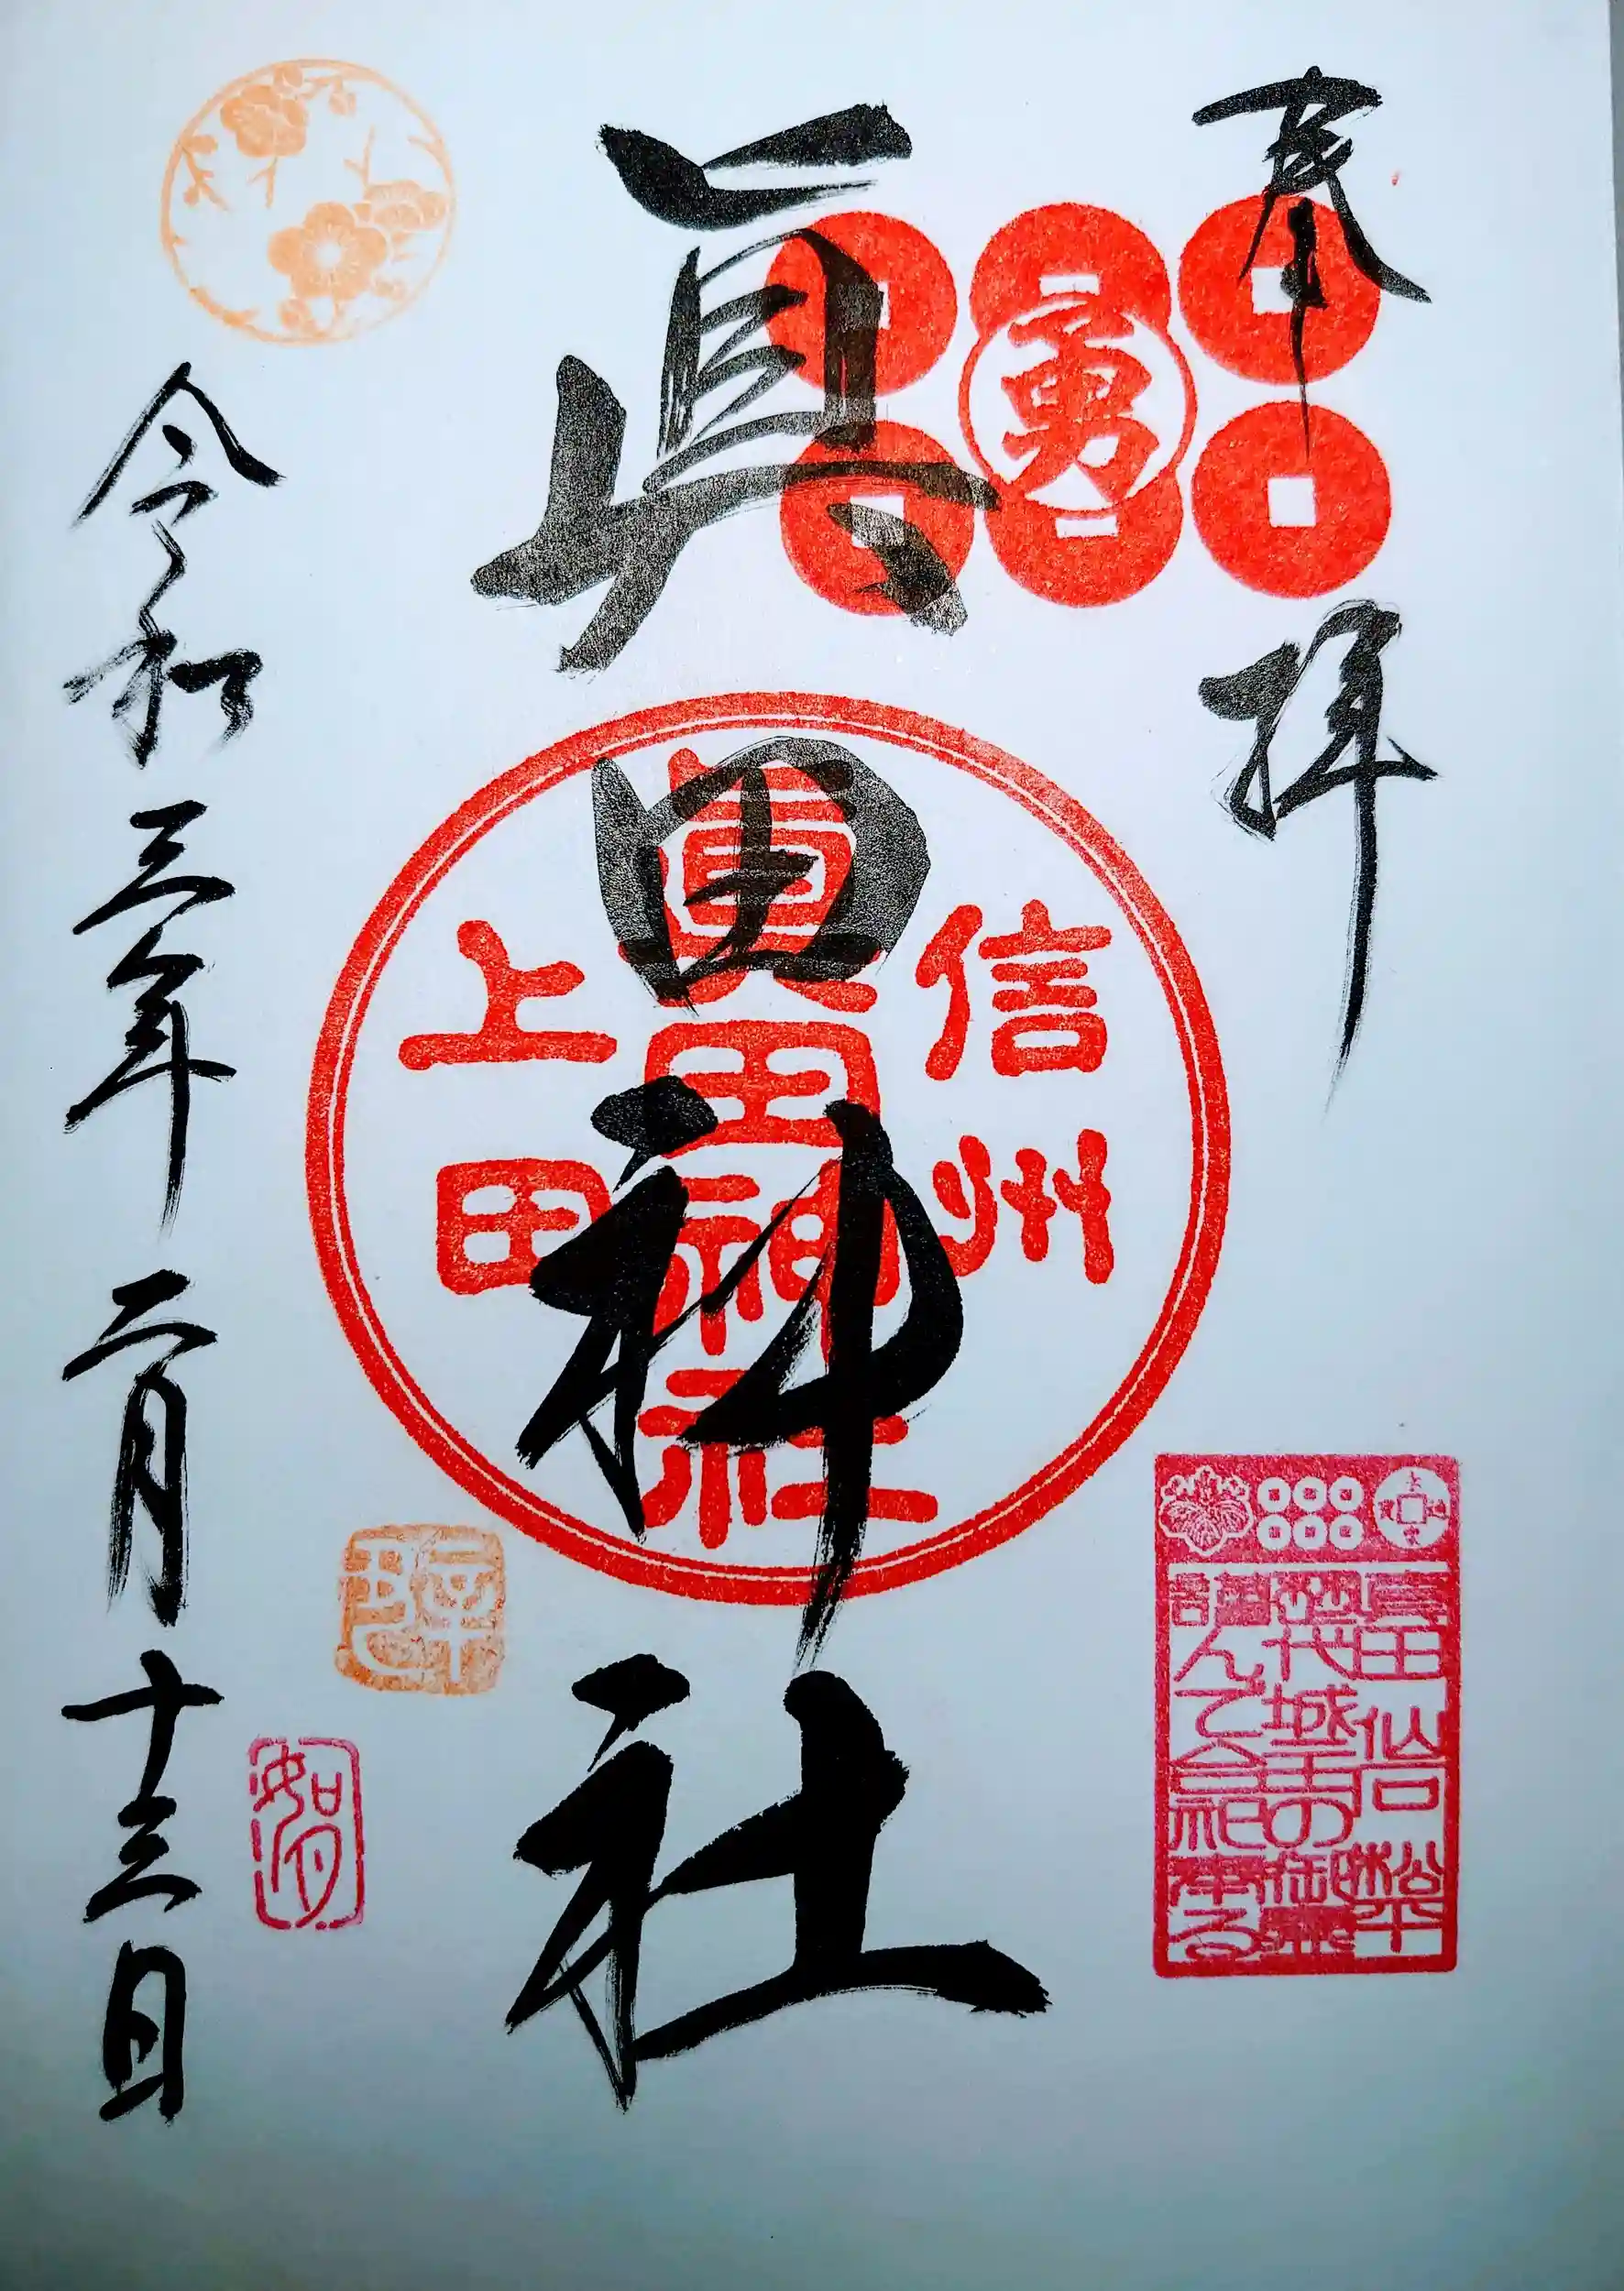 奉拝
勇
眞田神社
信州
眞田神社
上田
真田 仙石 松平
歴代城主の御霊
謹んで合祀奉る
令和三年二月十三日
如月